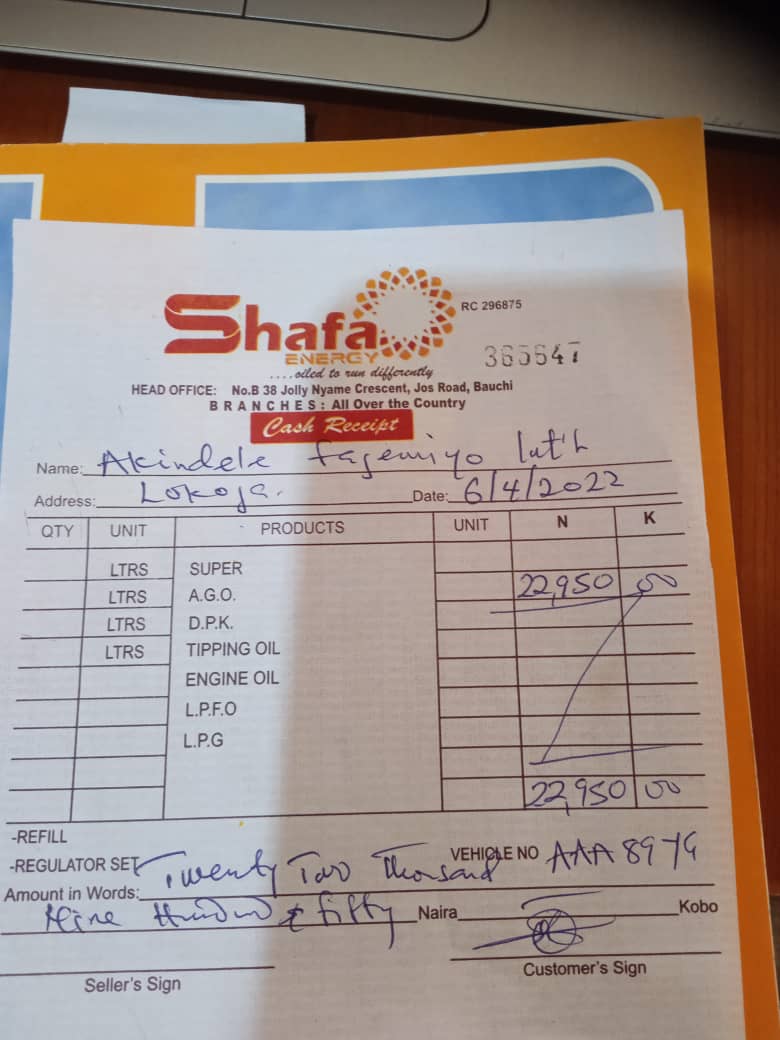 Shafa
ENERGY
RC 296875
365647
....oiled to run differently
HEAD OFFICE: No.B 38 Jolly Nyame Crescent, Jos Road, Bauchi
BRANCHES: All Over the Country
Cash Receipt
Name: Akindele Fagemiyo
Address: Lokoja. Date: 6/4/2022
QTY UNIT PRODUCTS UNIT N K
LTRS SUPER 22,950 00
LTRS A.G.O.
LTRS D.P.K.
LTRS TIPPING OIL
ENGINE OIL
L.P.F.O
L.P.G
22,950 00
-REFILL
-REGULATOR SET VEHICLE NO
Amount in Words: Twenty Two Thousand
Nine Hundred & fifty Naira Kobo
Seller's Sign Customer's Sign